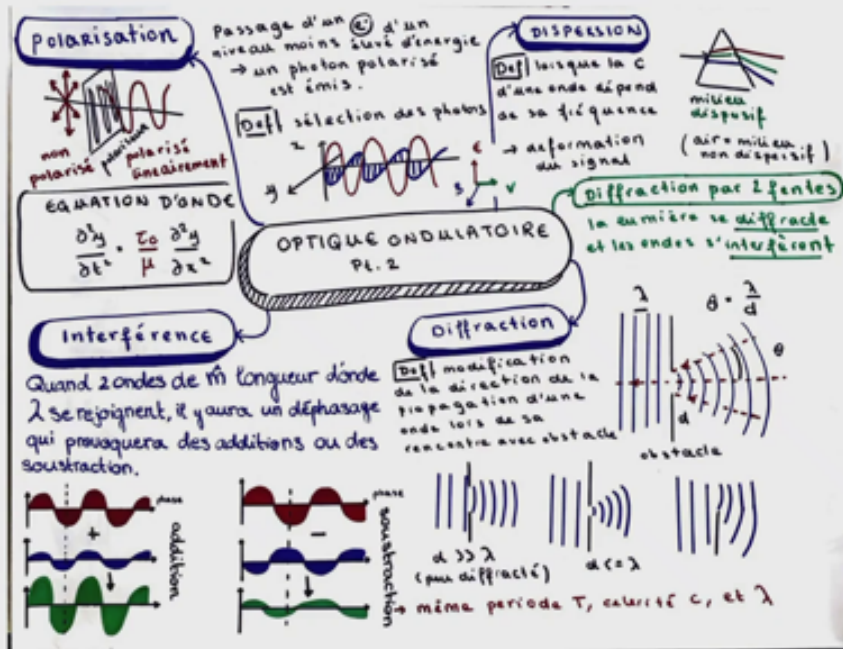 Polarisation
Passage d'un e⁻ d'un
niveau moins élevé d'énergie
→ un photon polarisé
est émis.
Def sélection des photons
non
polarisé
polariseur
polarisé
linéairement
EQUATION D'ONDE
∂²y/∂t² = τ₀/μ ∂²y/∂x²
DISPERSION
Def lorsque la C
d'une onde dépend
de sa fréquence
→ déformation
du signal
milieu
dispersif
(air = milieu
non dispersif)
Diffraction par 2 fentes
la lumière se diffracte
et les ondes s'interfèrent
OPTIQUE ONDULATOIRE
Pt. 2
Interférence
Quand 2 ondes de m̂ longueur d'onde
λ se rejoignent, il y aura un déphasage
qui provoquera des additions ou des
soustraction.
phase
+
addition
phase
−
soustraction
Diffraction
Def modification
de la direction de la
propagation d'une
onde lors de sa
rencontre avec obstacle
λ
θ = λ/d
θ
d
obstacle
d >> λ
(peu diffracté)
d <= λ
→ même periode T, celerité C, et λ